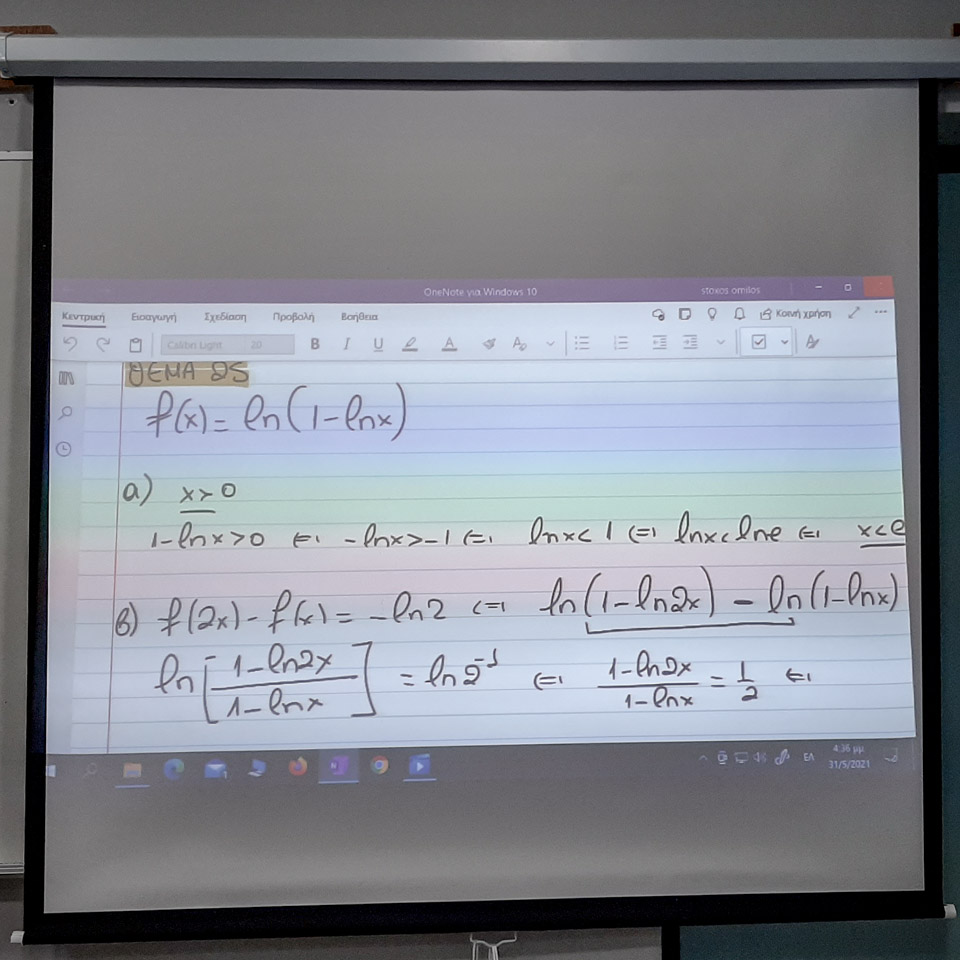 OneNote για Windows 10 stoxos omilos
Κεντρική Εισαγωγή Σχεδίαση Προβολή Βοήθεια Κοινή χρήση
Calibri Light 20 B I U A A
ΘΕΜΑ 25
f(x) = ln(1-lnx)
α) x > 0
1-lnx>0 ⇔ -lnx>-1 ⇔ lnx<1 ⇔ lnx<lne ⇔ x<e
β) f(2x)-f(x) = -ln2 ⇔ ln(1-ln2x) - ln(1-lnx)
ln[(1-ln2x)/(1-lnx)] = ln2⁻¹ ⇔ (1-ln2x)/(1-lnx) = 1/2 ⇔
4:36 μμ
ΕΛ
31/5/2021